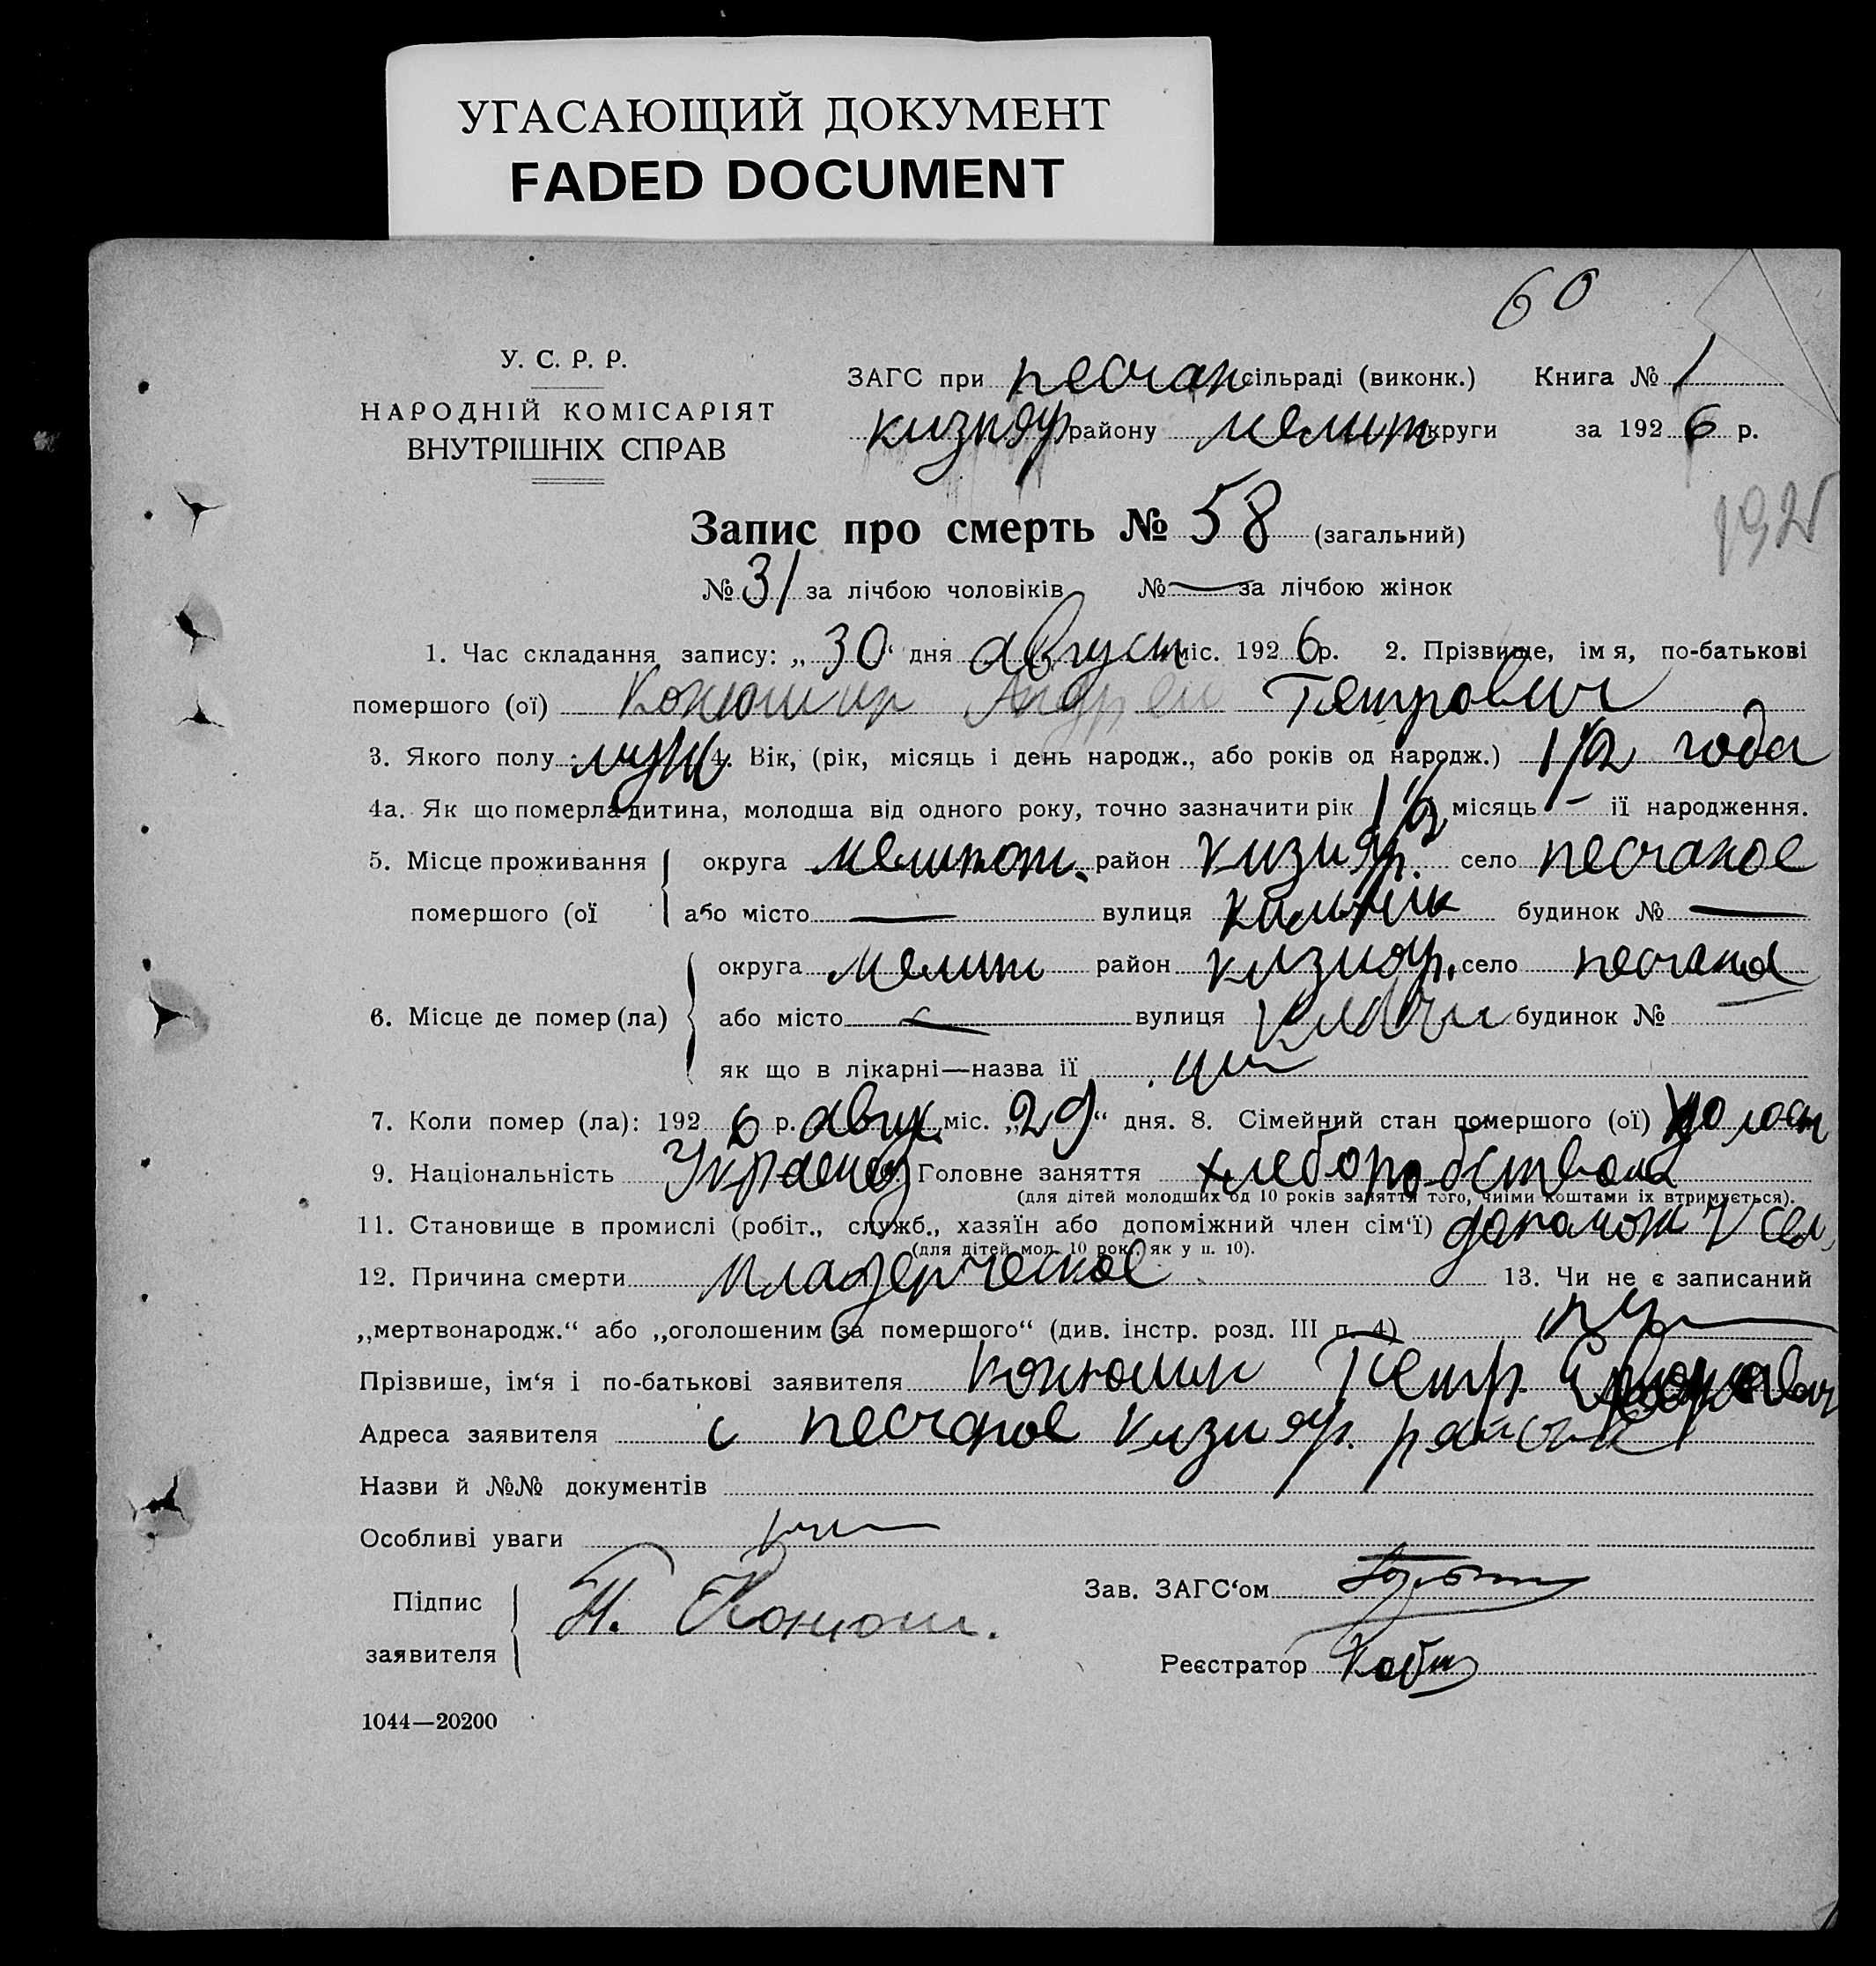 УГАСАЮЩИЙ ДОКУМЕНТ
FADED DOCUMENT
60
У. С. Р. Р.
НАРОДНІЙ КОМІСАРІЯТ
ВНУТРІШНІХ СПРАВ
ЗАГС при песчан сільраді (виконк.) Книга № 1
кизияр району мелит округи за 1926 р.
192
Запис про смерть № 58 (загальний)
№ 31 за лічбою чоловіків № — за лічбою жінок
1. Час складання запису: „30“ дня август міс. 1926 р. 2. Прізвище, імя, по-батькові
помершого (ої) Андрей Петрович
3. Якого полу муж 4. Вік, (рік, місяць і день народж., або років од народж.) 1 1/2 года
4а. Як що померла дитина, молодша від одного року, точно зазначити рік 1 1/2 місяць – її народження.
5. Місце проживання помершого (ої округа мелитоп. район кизияр. село песчаное
або місто — вулиця будинок № —
6. Місце де помер (ла) округа мелит район кизияр. село песчаное
або місто — вулиця будинок № —
як що в лікарні—назва її
7. Коли помер (ла): 1926 р. авгус міс. „29“ дня. 8. Сімейний стан помершого (ої) холост
9. Національність Украенец 10. Головне заняття
(для дітей молодших од 10 років заняття того, чиїми коштами їх втримується).
11. Становище в промислі (робіт., служб., хазяїн або допоміжний член сім‘ї) допомож ч сем,
(для дітей мол. 10 рок., як у п. 10).
12. Причина смерти младенческое 13. Чи не є записаний
„мертвонародж.“ або „оголошеним за помершого“ (див. інстр. розд. III п. 4)
Прізвише, ім‘я і по-батькові заявителя Петр
Адреса заявителя с песчаное кизияр. района
Назви й №№ документів
Особливі уваги
Підпис заявителя П. Конюш.
Зав. ЗАГС‘ом
Реєстратор
1044—20200